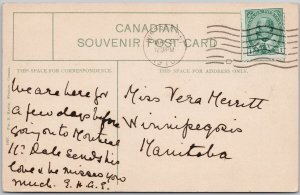 CANADIAN
SOUVENIR POST CARD
THIS SPACE FOR CORRESPONDENCE.
THIS SPACE FOR ADDRESS ONLY.
We are here for
a few days before
going on to Montreal
Mr. Dale sends his
love & he misses you
much. E.H.G.P.
Miss Vera Merritt
Winnipegosis
Manitoba